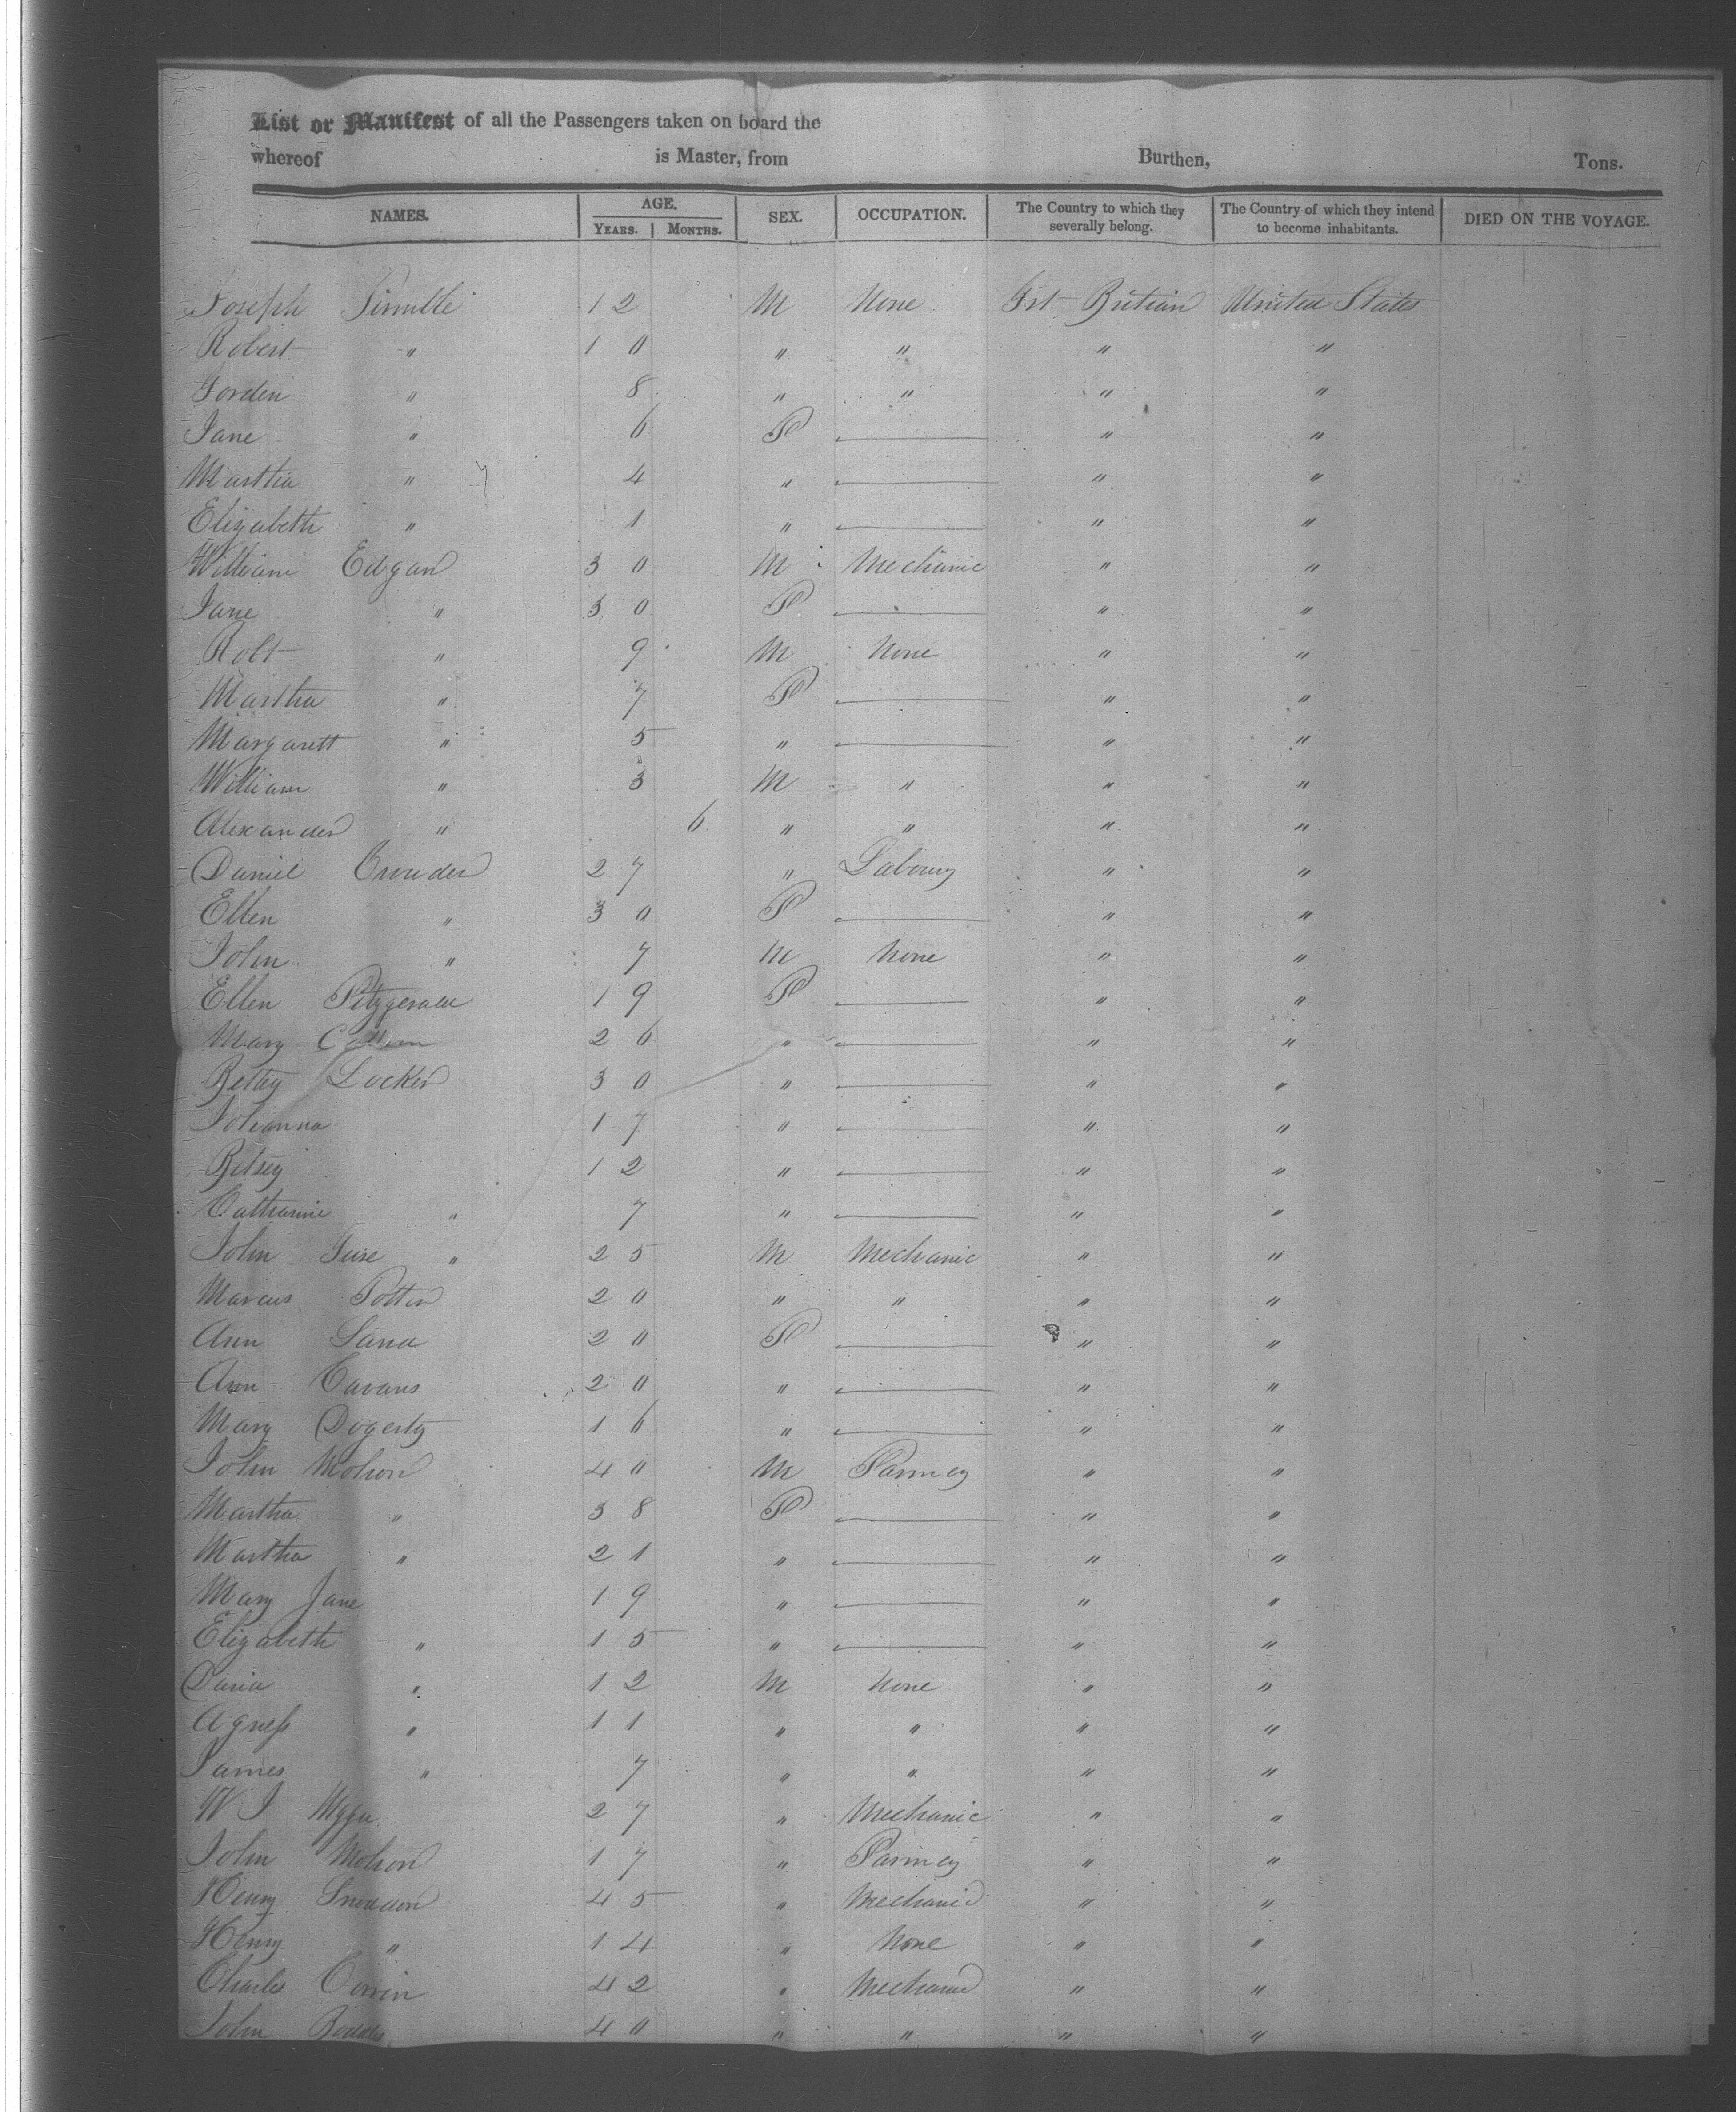 List or Manifest of all the Passengers taken on board the
whereof is Master, from Burthen, Tons.
NAMES. AGE. SEX. OCCUPATION. The Country to which they severally belong. The Country of which they intend to become inhabitants. DIED ON THE VOYAGE.
YEARS. MONTHS.
Joseph 12 M None Grt Britian United States
Robert " 10 " " " "
Gorden " 8 " " " "
Jane " 6 F — " "
Martha " 4 " — " "
Elizabeth " 1 " — " "
William Edgar 30 M Mechanic " "
Jane " 30 F — " "
Robt " 9 M None " "
Martha " 7 F — " "
Margarett " 5 " — " "
William " 3 M " " "
Alexander " 6 " " " "
Daniel Crowder 27 " " "
Ellen " 30 F — " "
John " 7 M None " "
Ellen Fitzgerald 19 F — " "
Mary 26 " — " "
Betty Locker 30 " — " "
Johanna 17 " — " "
Betsey 12 " — " "
Catharine " 7 " — " "
John " 25 M Mechanic " "
Marcus Potter 20 " " " "
Ann 20 F — " "
Ann Cavans 20 " — " "
Mary Dogerty 16 " — " "
John 40 M " "
Martha " 38 F — " "
Martha " 21 " — " "
Mary Jane 19 " — " "
Elizabeth " 15 " — " "
David " 12 M None " "
Agness " 11 " " " "
James " 7 " " " "
W J 27 " Mechanic " "
John 17 " " "
Henry Snoddon 45 " Mechanic " "
Henry " 14 " None " "
Charles 42 " Mechanic " "
John 40 " " " "